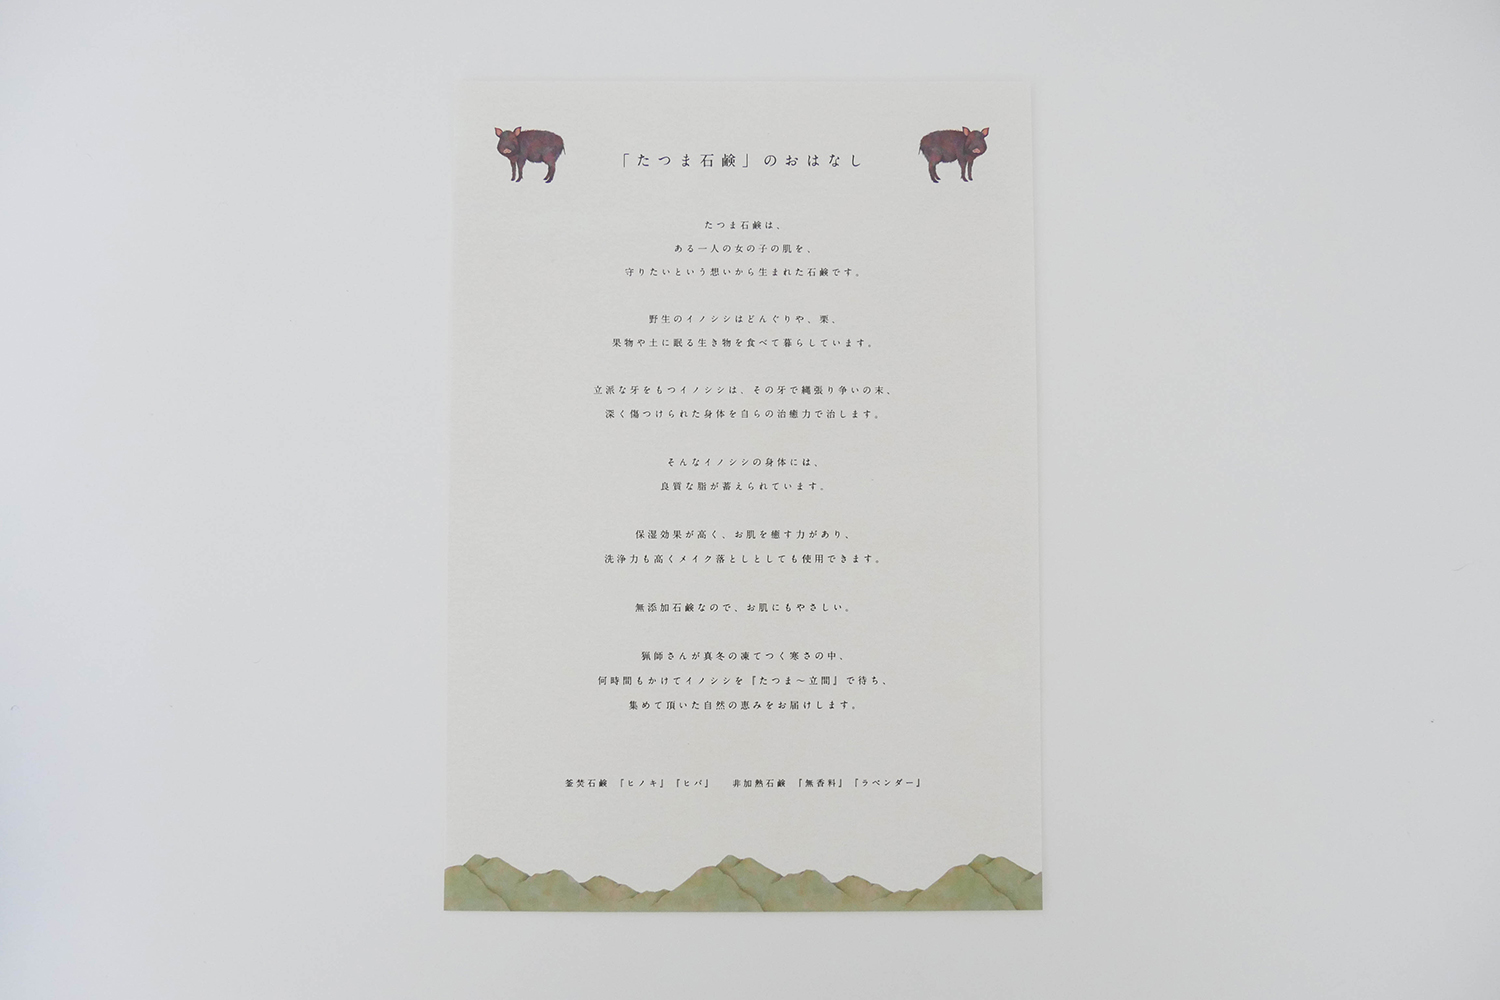 「たつま石鹸」のおはなし
たつま石鹸は、
ある一人の女の子の肌を、
守りたいという想いから生まれた石鹸です。
野生のイノシシはどんぐりや、栗、
果物や土に眠る生き物を食べて暮らしています。
立派な牙をもつイノシシは、その牙で縄張り争いの末、
深く傷つけられた身体を自らの治癒力で治します。
そんなイノシシの身体には、
良質な脂が蓄えられています。
保湿効果が高く、お肌を癒す力があり、
洗浄力も高くメイク落としとしても使用できます。
無添加石鹸なので、お肌にもやさしい。
猟師さんが真冬の凍てつく寒さの中、
何時間もかけてイノシシを『たつま〜立間』で待ち、
集めて頂いた自然の恵みをお届けします。
釜焚石鹸 『ヒノキ』『ヒバ』 非加熱石鹸 『無香料』『ラベンダー』